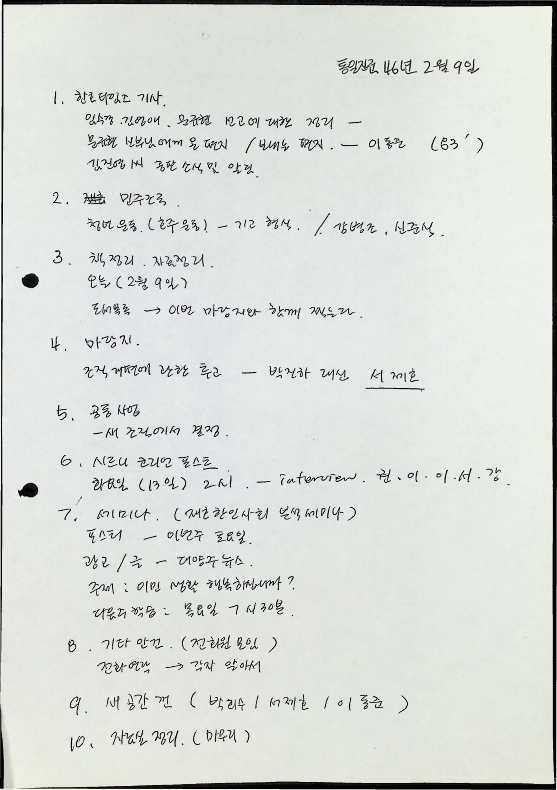 통일진군 46년 2월 9일
1. 한호타임즈 기사.
임수경, 김영애, 문규현 보고에 대한 정리 —
문규현 신부님에게 온 편지 / 보내는 편지. — 이동준 (83')
김진영씨 출판 소식 및 알림.
2. 민주조국
청년운동. (호주운동) — 기고 형식. / 강병조, 신준식.
3. 책정리. 자료정리.
오늘 (2월 9일)
도서목록 → 이번 마당지와 함께 찍는다.
4. 마당지.
조직개편에 관한 투고 — 박진하 대신 서제호
5. 공동사업
— 새 조직에서 결정.
6. 시드니 코리언 포스트
화요일 (13일) 2시. — interview. 권.이.이.서.강.
7. 세미나. (재호한인사회 분석세미나)
포스터 — 이번주 토요일.
광고 / 글 — 대양주뉴스.
주제 : 이민 생활 행복하십니까?
다음주학습 : 목요일 7시30분.
8. 기타 안건. (전회원 모임)
전화연락 → 각자 알아서
9. 새공간 건 ( 박리수 / 서제호 / 이동준 )
10. 자료실 정리. (마무리)